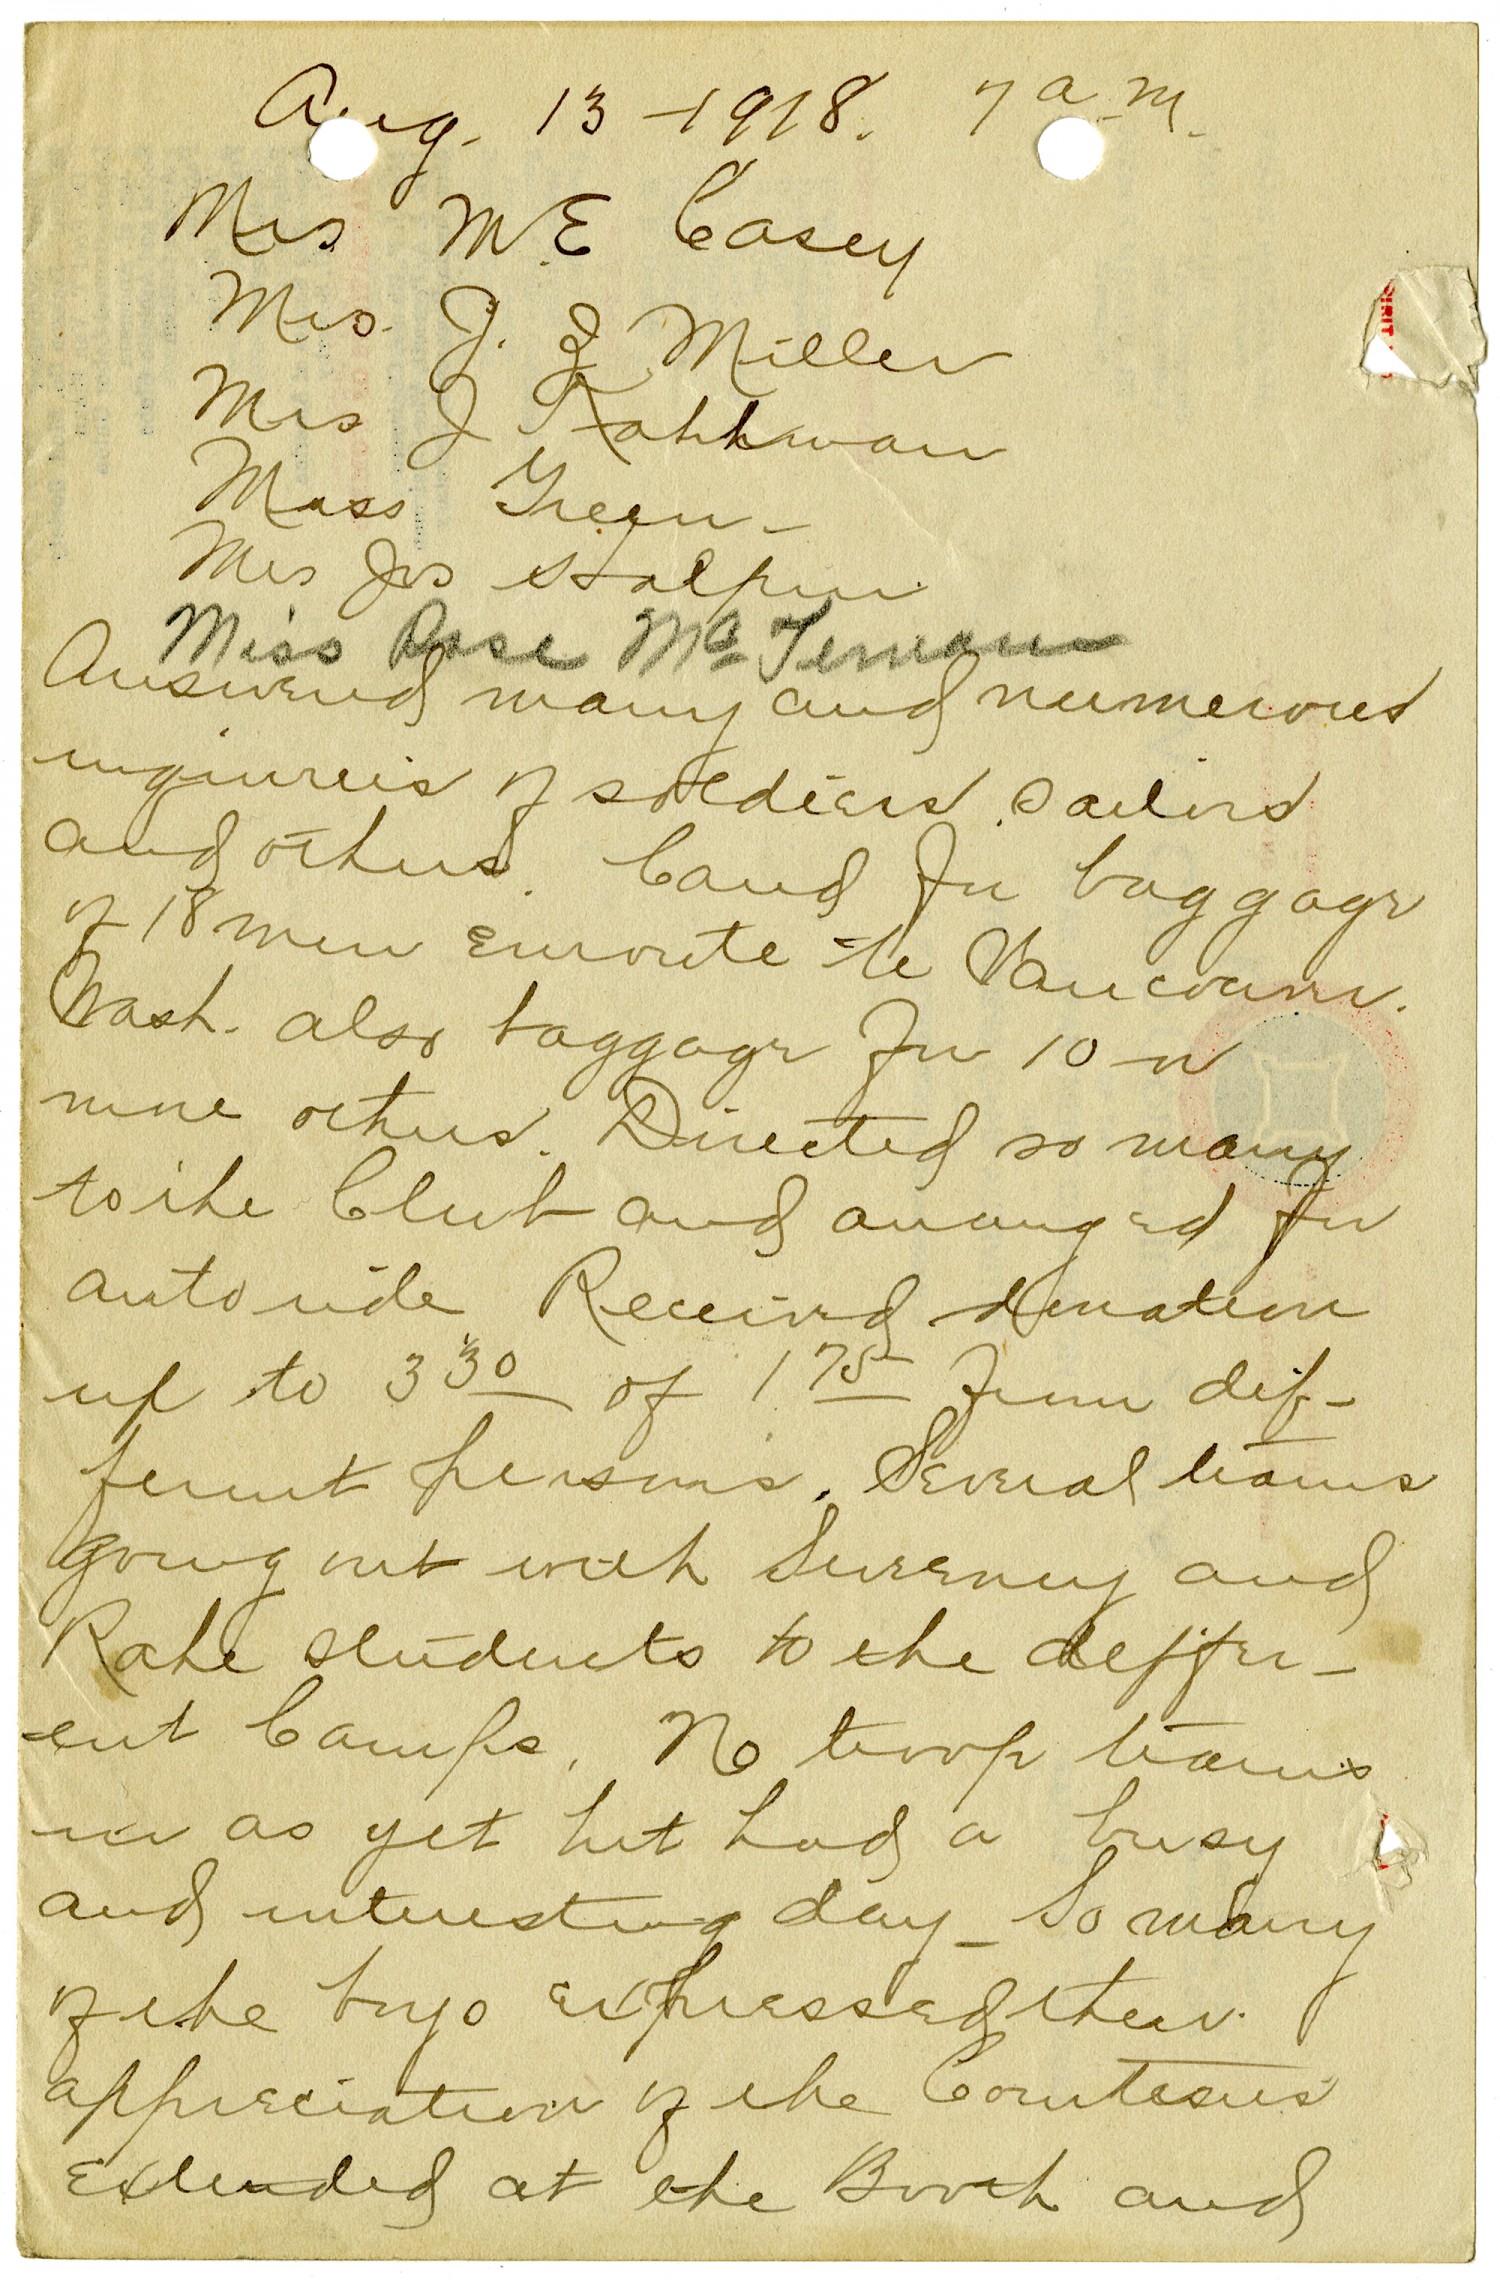 Aug. 13 - 1918. 7 a.m.
Mrs M.E Casey
Mrs. J. Z Miller
Mrs J
Miss Green -
Mrs Jos Halpin
Miss Rose Mc
Answered many and numerous
inquireis of soldiers, sailors
and others. Cared for baggage
of 18 men enroute to Vancouver.
Wash. also baggage for 10 or
nine others. Directed so many
to the Club and arranged for
auto ride Received donation
up to 3 30 of 1 75 from dif-
ferent persons. Several trains
going out with Sweeney and
Rahe students to the differ-
ent Camps. No troop trains
in as yet but had a busy
and interesting day - So many
of the boys expressed their
appreciation of the Courtesies
extended at the Booth and